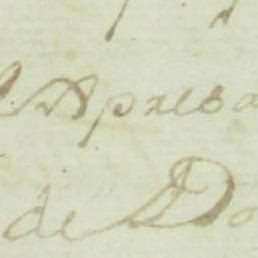 Apresa
de Do